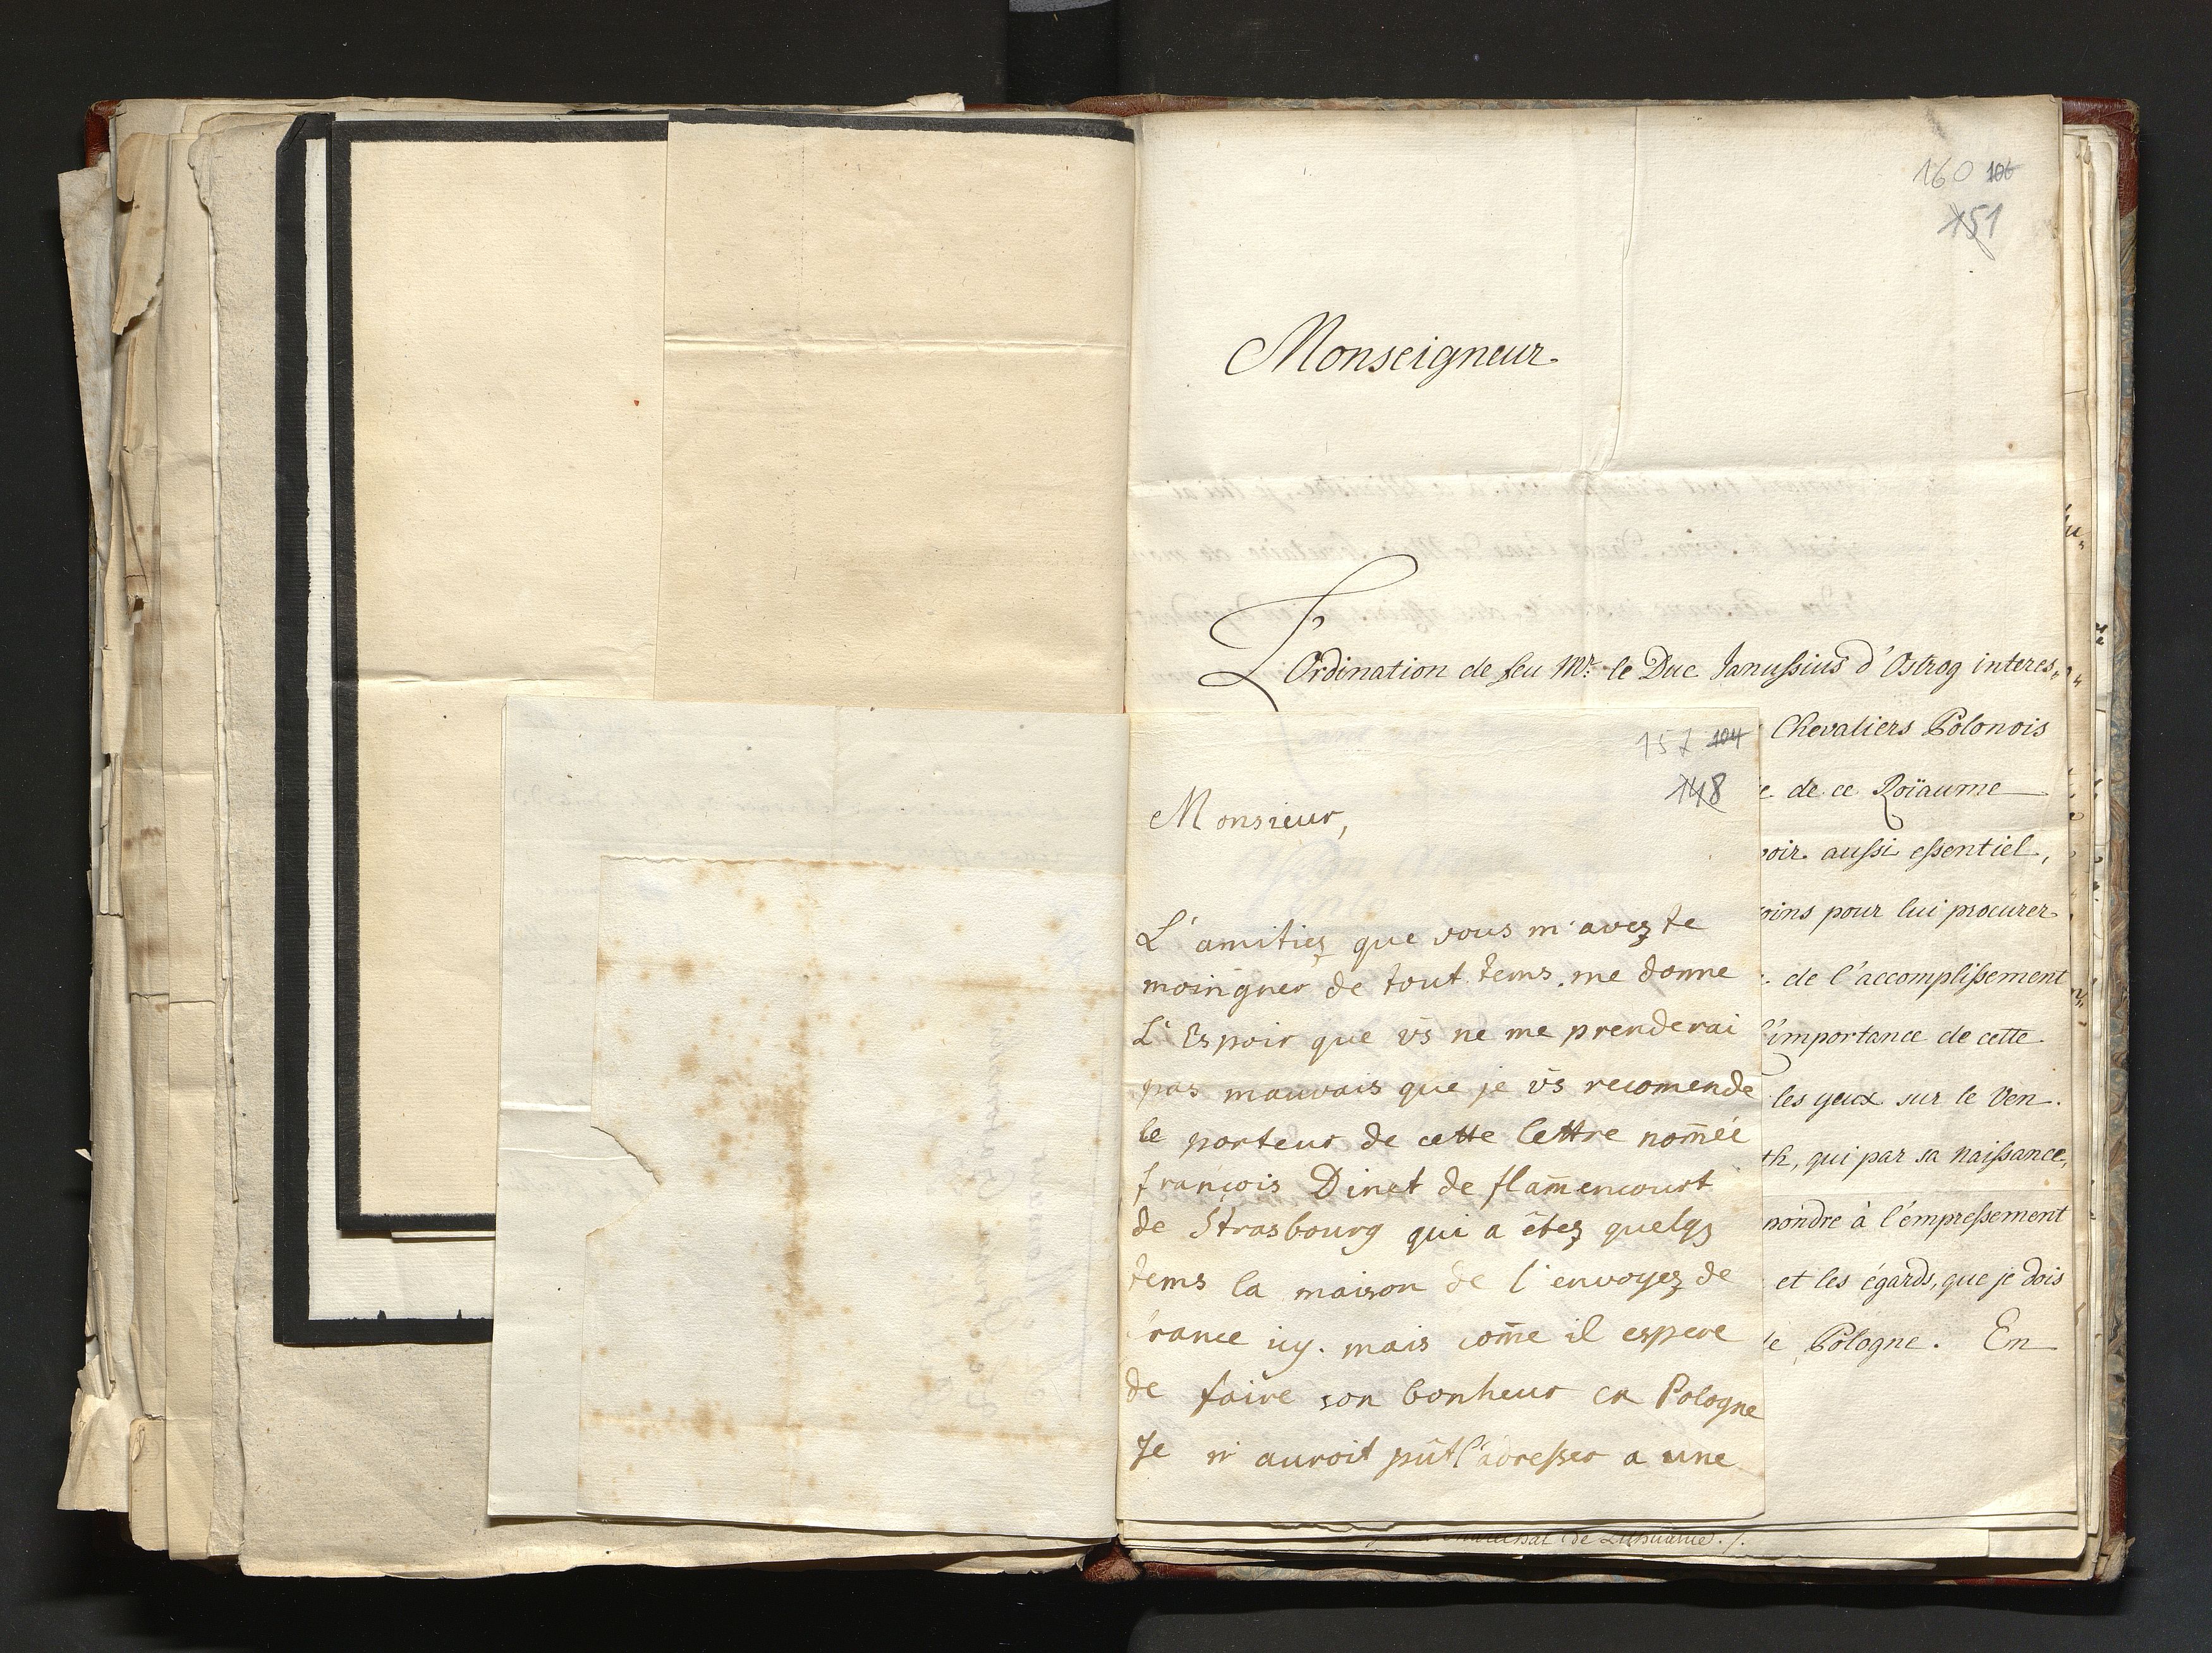 160 106
151
Monseigneur.
L'Ordination de feu Mr. le Duc Janussius d'Ostrog interes„
Chevaliers Polonois
de ce Roïaume
aussi essentiel,
pour lui procurer
de l'accomplissement
l'importance de cette
les yeux sur le Ven.
qui par sa naissance,
à l'empressement
et les égards, que je dois
Pologne. En
157 104
148
Monsieur,
L'amitiez que vous m'avez te
moingner de tout tems me donne
L'Espoir que vs ne me prenderai
pas mauvais que je vs recomende
le porteur de cette lettre nom̄éé
françois Dinet de flam̄encourt
de Strasbourg qui a étez quelqz
tems la maison de l'envoyez de
france icy. mais com̄e il espere
de faire son bonheur en Pologne
Je n'auroit pût l'adresser a une
Marechal de Lithuanie./.